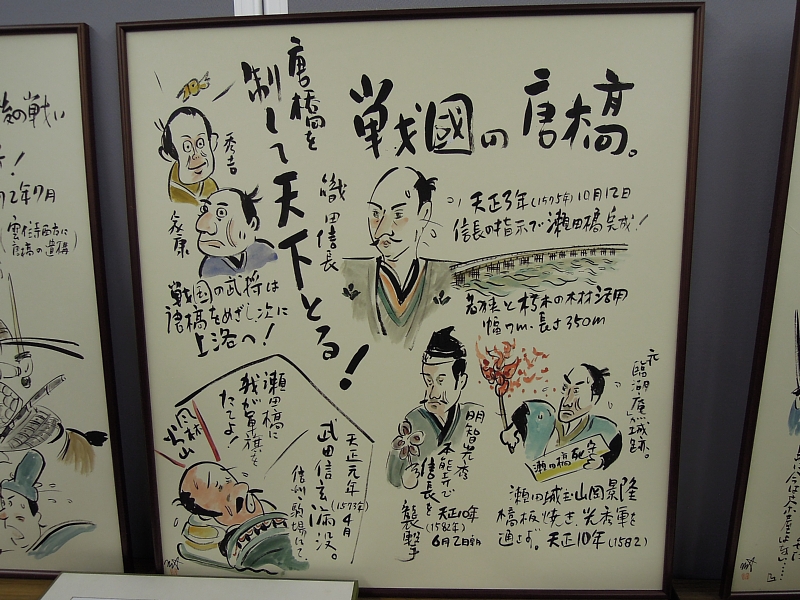 戦國の唐橋。
唐橋を
制して天下とる！
秀吉
家康
織田信長
天正3年(1575年)10月12日
信長の指示で瀬田橋完成！
若狭と朽木の木材活用
幅7m・長さ350m
戦国の武将は
唐橋をめざし、次に
上洛へ！
瀬田橋に
我が軍旗を
たてよ！
風林
火山
天正元年
(1573年)4月
武田信玄病没。
信州・駒場にて
明智光秀
本能寺で
信長を
襲撃
天正10年
(1582年)
6月2日朝
元「臨湖庵」が城跡。
瀬田橋死守
瀬田城主山岡景隆
橋板焼き、光秀軍を
通さず。天正10年(1582)
の戦い
2年7月